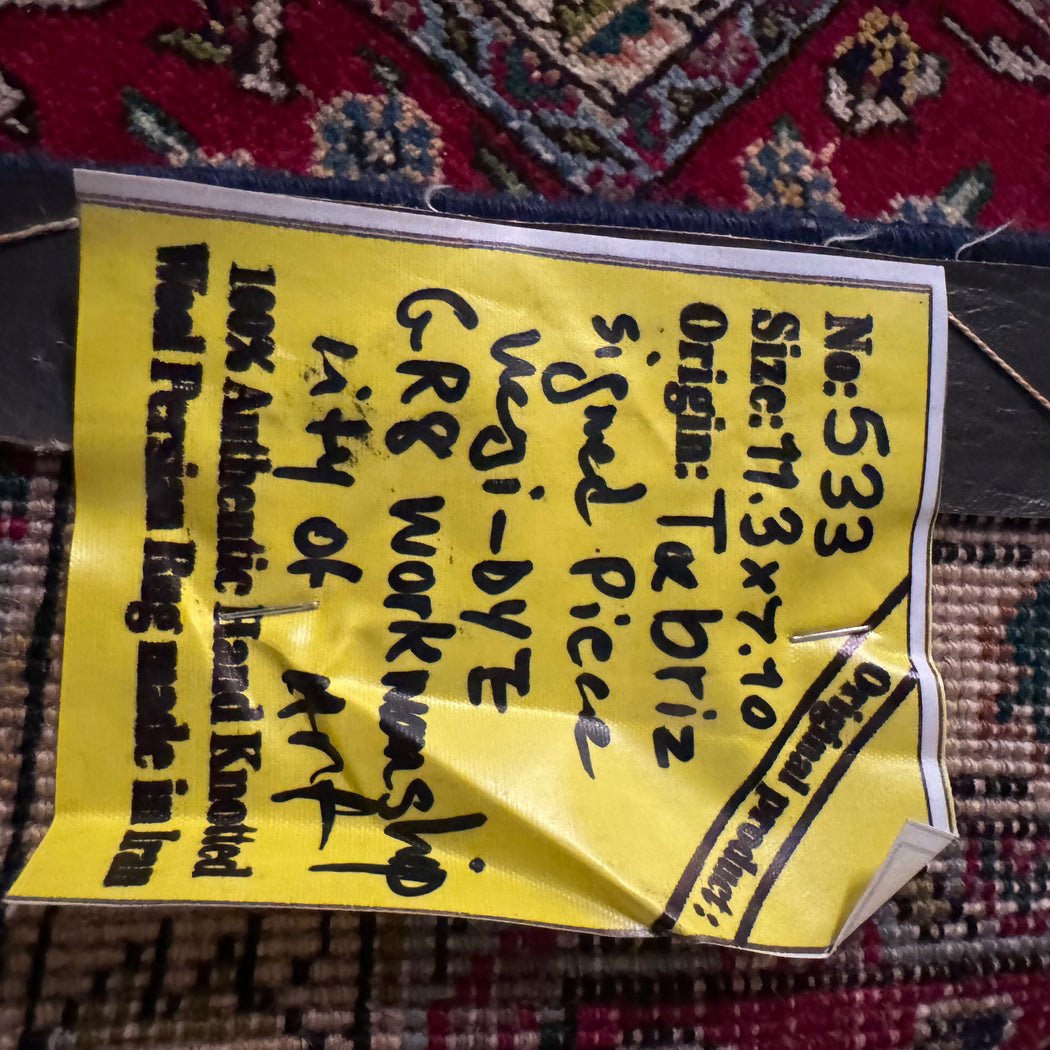 No: 533
Size: 11.3 x 7.10
Origin: Tabriz
signed. Picce
Vegi-DyE
GR8 workmanship
nity of Art
100% Authentic Hand Knotted
Wool Persian Rug made in Iran
Original product;